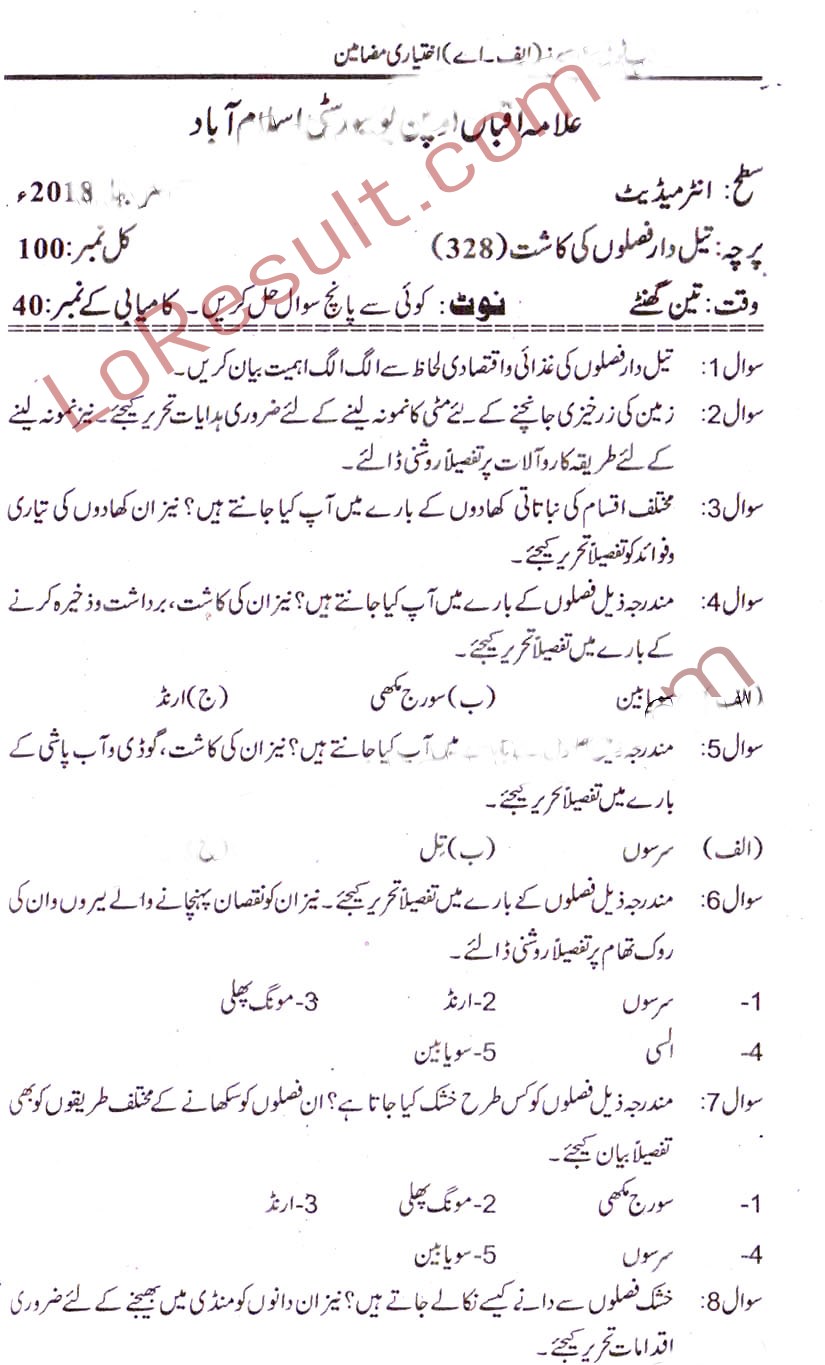 (ایف۔اے) اختیاری مضامین
علامہ اقبال اوپن یونیورسٹی اسلام آباد
سطح: انٹرمیڈیٹ 2018ء
پرچہ: تیل دار فصلوں کی کاشت (328) کل نمبر: 100
وقت: تین گھنٹے نوٹ: کوئی سے پانچ سوال حل کریں۔ کامیابی کے نمبر: 40
سوال 1: تیل دار فصلوں کی غذائی و اقتصادی لحاظ سے الگ الگ اہمیت بیان کریں۔
سوال 2: زمین کی زرخیزی جانچنے کے لئے مٹی کا نمونہ لینے کے لئے ضروری ہدایات تحریر کیجئے۔ نیز نمونہ لینے
کے لئے طریقہ کار و آلات پر تفصیلاً روشنی ڈالئے۔
سوال 3: مختلف اقسام کی نباتاتی کھادوں کے بارے میں آپ کیا جانتے ہیں؟ نیز ان کھادوں کی تیاری
و فوائد کو تفصیلاً تحریر کیجئے۔
سوال 4: مندرجہ ذیل فصلوں کے بارے میں آپ کیا جانتے ہیں؟ نیز ان کی کاشت، برداشت و ذخیرہ کرنے
کے بارے میں تفصیلاً تحریر کیجئے۔
(الف) سویابین (ب) سورج مکھی (ج) ارنڈ
سوال 5: مندرجہ ذیل میں آپ کیا جانتے ہیں؟ نیز ان کی کاشت، گوڈی و آب پاشی کے
بارے میں تفصیلاً تحریر کیجئے۔
(الف) سرسوں (ب) تِل
سوال 6: مندرجہ ذیل فصلوں کے بارے میں تفصیلاً تحریر کیجئے۔ نیز ان کو نقصان پہنچانے والے کیڑوں و ان کی
روک تھام پر تفصیلاً روشنی ڈالئے۔
1- سرسوں 2- ارنڈ 3- مونگ پھلی
4- السی 5- سویابین
سوال 7: مندرجہ ذیل فصلوں کو کس طرح خشک کیا جاتا ہے؟ ان فصلوں کو سکھانے کے مختلف طریقوں کو بھی
تفصیلاً بیان کیجئے۔
1- سورج مکھی 2- مونگ پھلی 3- ارنڈ
4- سرسوں 5- سویابین
سوال 8: خشک فصلوں سے دانے کیسے نکالے جاتے ہیں؟ نیز ان دانوں کو منڈی میں بھیجنے کے لئے ضروری
اقدامات تحریر کیجئے۔
LoResult.com